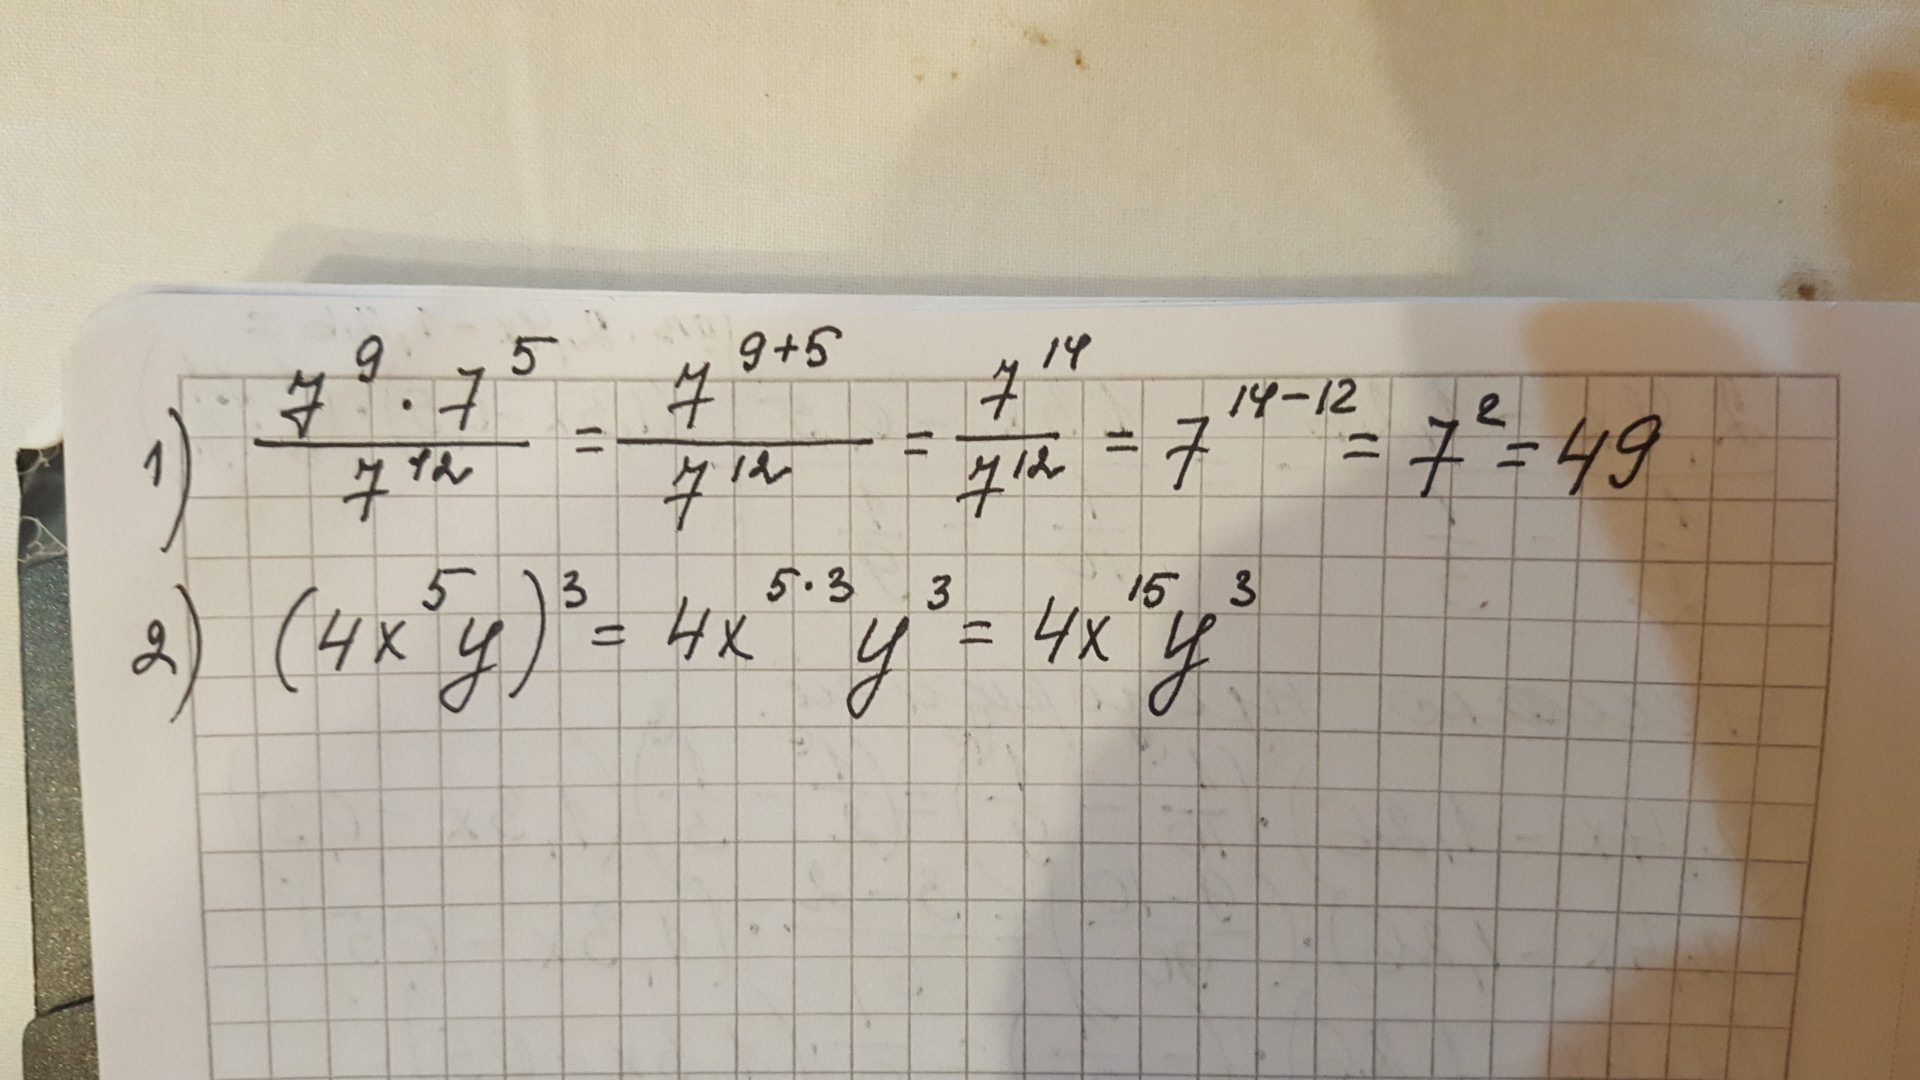 1) 7^9 · 7^5 / 7^12 = 7^(9+5) / 7^12 = 7^14 / 7^12 = 7^(14-12) = 7^2 = 49
2) (4x^5y)^3 = 4x^(5·3)y^3 = 4x^15y^3